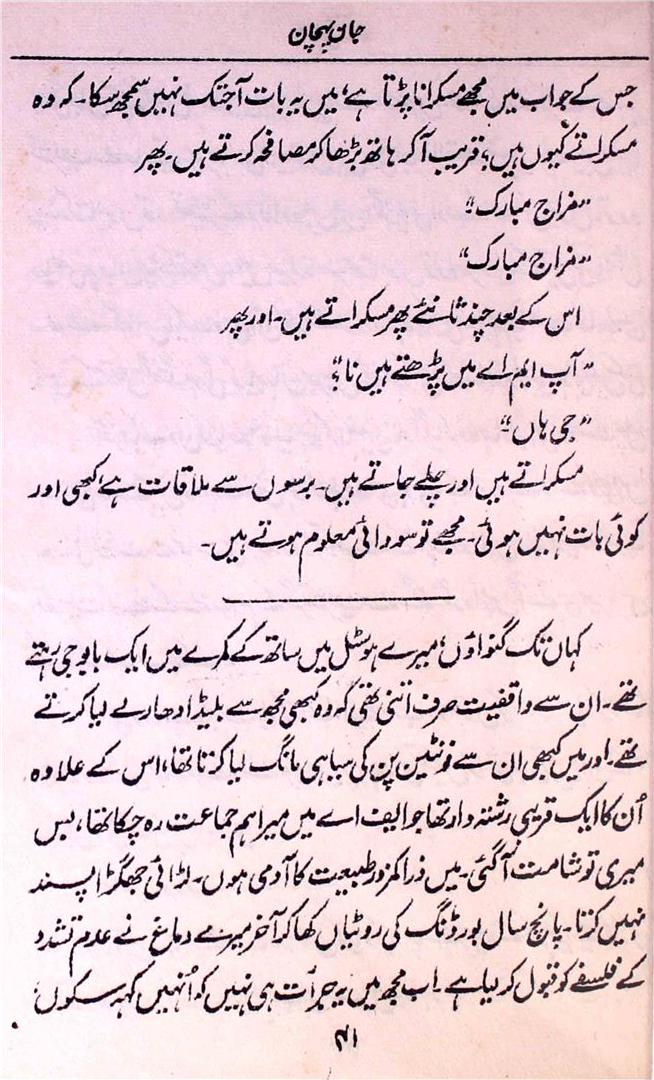 جان پہچان
جس کے جواب میں مجھے مسکرانا پڑتا ہے، میں یہ بات آجتک نہیں سمجھ سکا۔ کہ وہ
مسکراتے کیوں ہیں؟ قریب آ کر ہاتھ بڑھا کر مصافحہ کرتے ہیں۔ پھر
”مزاج مبارک“
”مزاج مبارک“
اس کے بعد چند ثانئے پھر مسکراتے ہیں۔ اور پھر
”آپ ایم اے میں پڑھتے ہیں نا؟“
”جی ہاں“
مسکراتے ہیں اور چلے جاتے ہیں۔ برسوں سے ملاقات ہے، کبھی اور
کوئی بات نہیں ہوئی۔ مجھے تو سودائی معلوم ہوتے ہیں۔
کہاں تک گنواؤں، میرے ہوسٹل میں ساتھ کے کمرے میں ایک بابو جی رہتے
تھے۔ ان سے واقفیت صرف اتنی تھی کہ وہ کبھی مجھ سے بلیڈ ادھار لے لیا کرتے
تھے۔ اور میں کبھی ان سے فونٹین پن کی سیاہی مانگ لیا کرتا تھا، اس کے علاوہ
اُن کا ایک قریبی رشتہ دار تھا جو ایف اے میں میرا ہم جماعت رہ چکا تھا، بس
میری تو شامت آگئی۔ میں ذرا کمزور طبیعت کا آدمی ہوں۔ لڑائی جھگڑا پسند
نہیں کرتا۔ پانچ سال بورڈنگ کی روٹیاں کھا کر آخر میرے دماغ نے عدم تشدد
کے فلسفے کو قبول کر لیا ہے۔ اب مجھ میں یہ جرأت ہی نہیں کہ اُنہیں کہہ سکوں،
۴۱